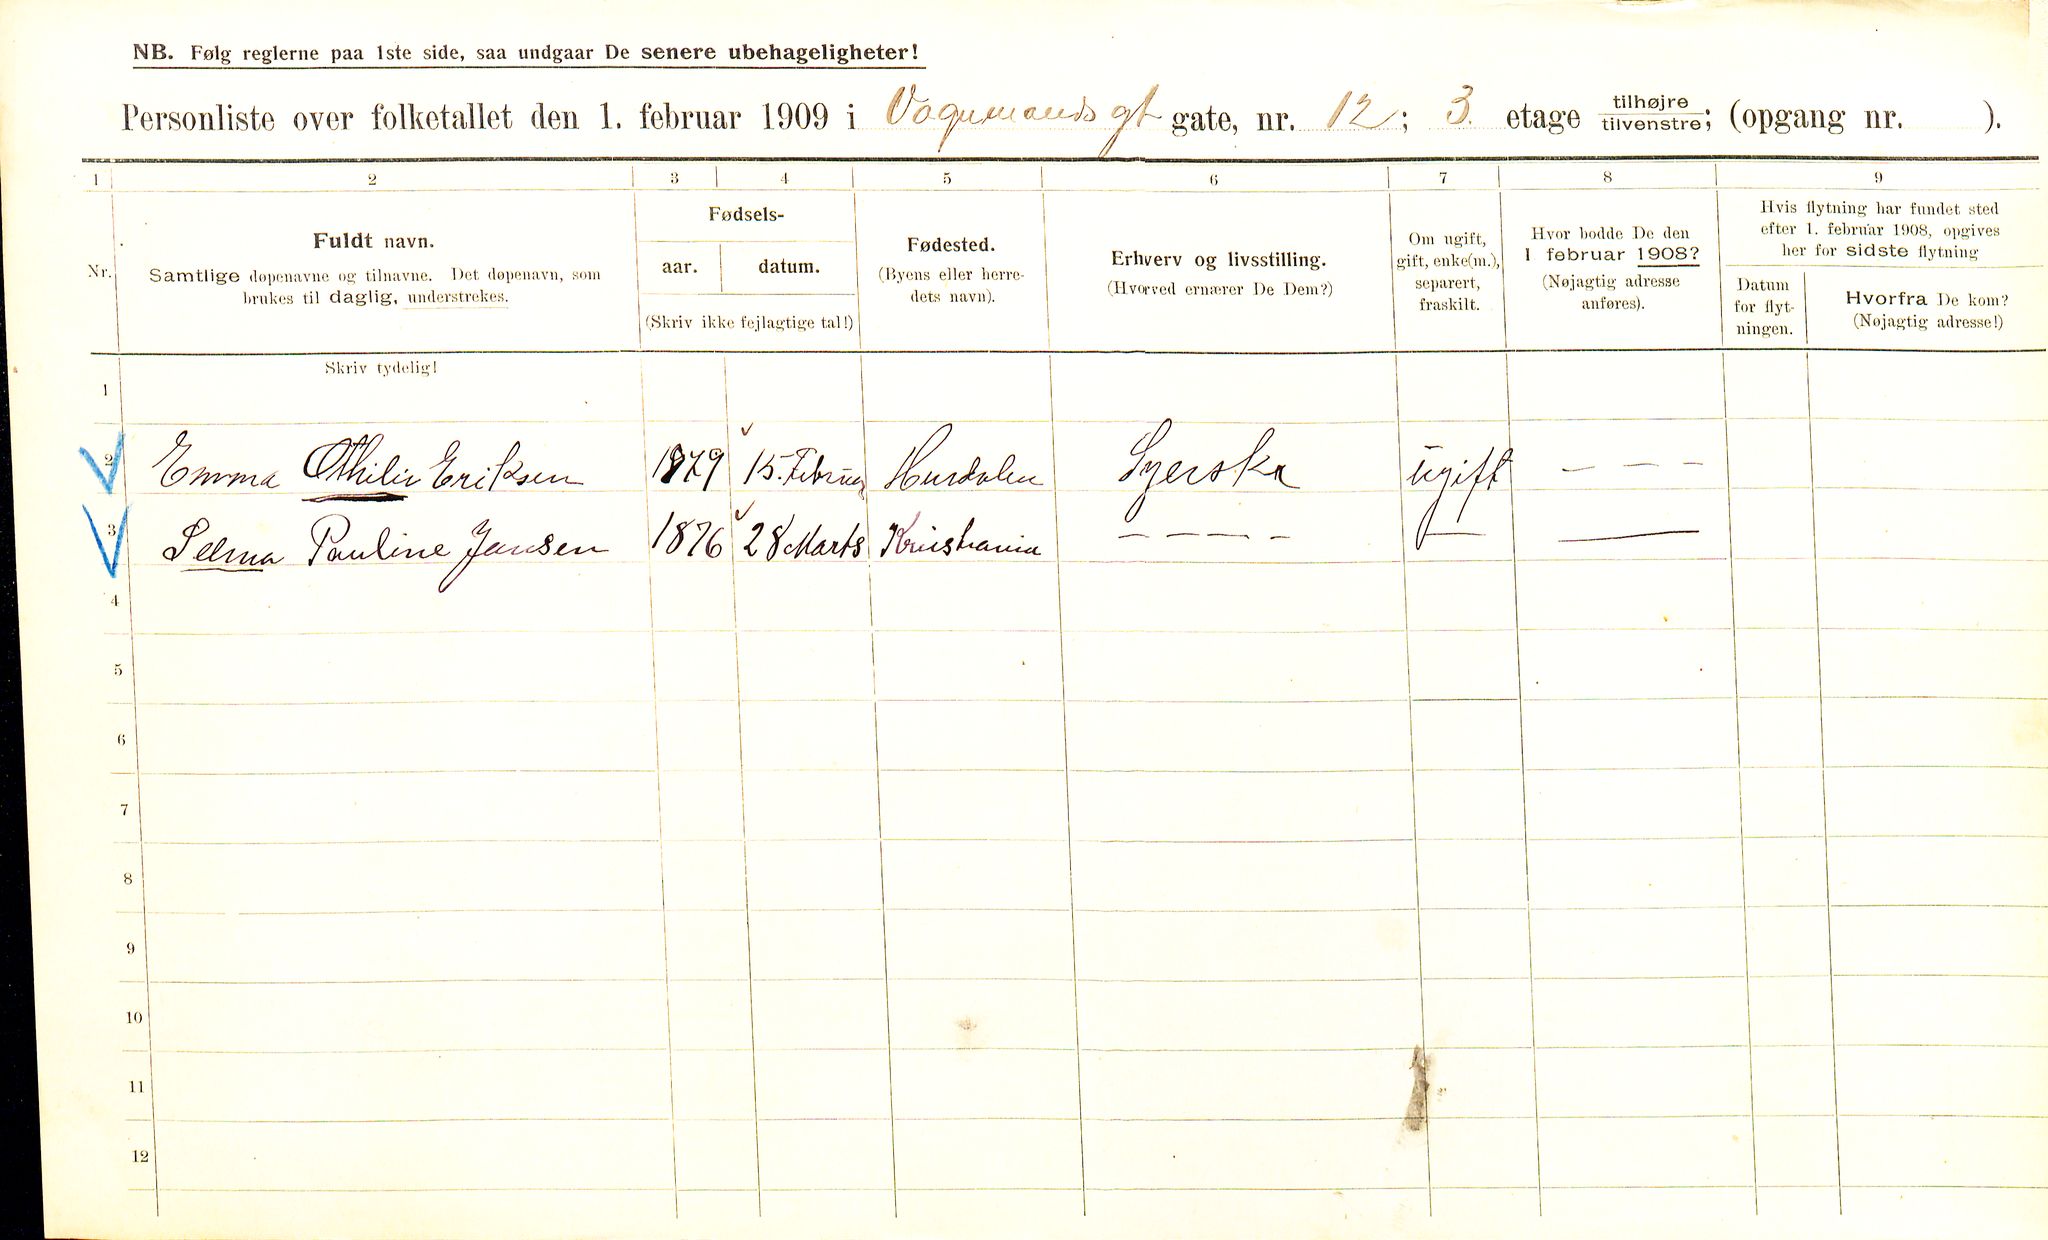 NB. Følg reglerne paa 1ste side, saa undgaar De senere ubehageligheter!
Personliste over folketallet den 1. februar 1909 i Vognmands gt gate, nr. 12; 3. etage tilhøjre / tilvenstre; (opgang nr. ).
1 2 3 4 5 6 7 8 9
Nr.
Fuldt navn.
Samtlige døpenavne og tilnavne. Det døpenavn, som
brukes til daglig, understrekes.
Fødsels-
aar. datum.
(Skriv ikke fejlagtige tal!)
Fødested.
(Byens eller herre-
dets navn).
Erhverv og livsstilling.
(Hvorved ernærer De Dem?)
Om ugift,
gift, enke(m.),
separert,
fraskilt.
Hvor bodde De den
1 februar 1908?
(Nøjagtig adresse
anføres).
Hvis flytning har fundet sted
efter 1. februar 1908, opgives
her for sidste flytning
Datum
for flyt-
ningen.
Hvorfra De kom?
(Nøjagtig adresse!)
Skriv tydelig!
1
2 Emma Othilie Eriksen 1879 15. Februar Hurdalen Syerske ugift — — —
3 Selma Pauline Jansen 1876 28 Marts Kristiania — — — — — —
4
5
6
7
8
9
10
11
12